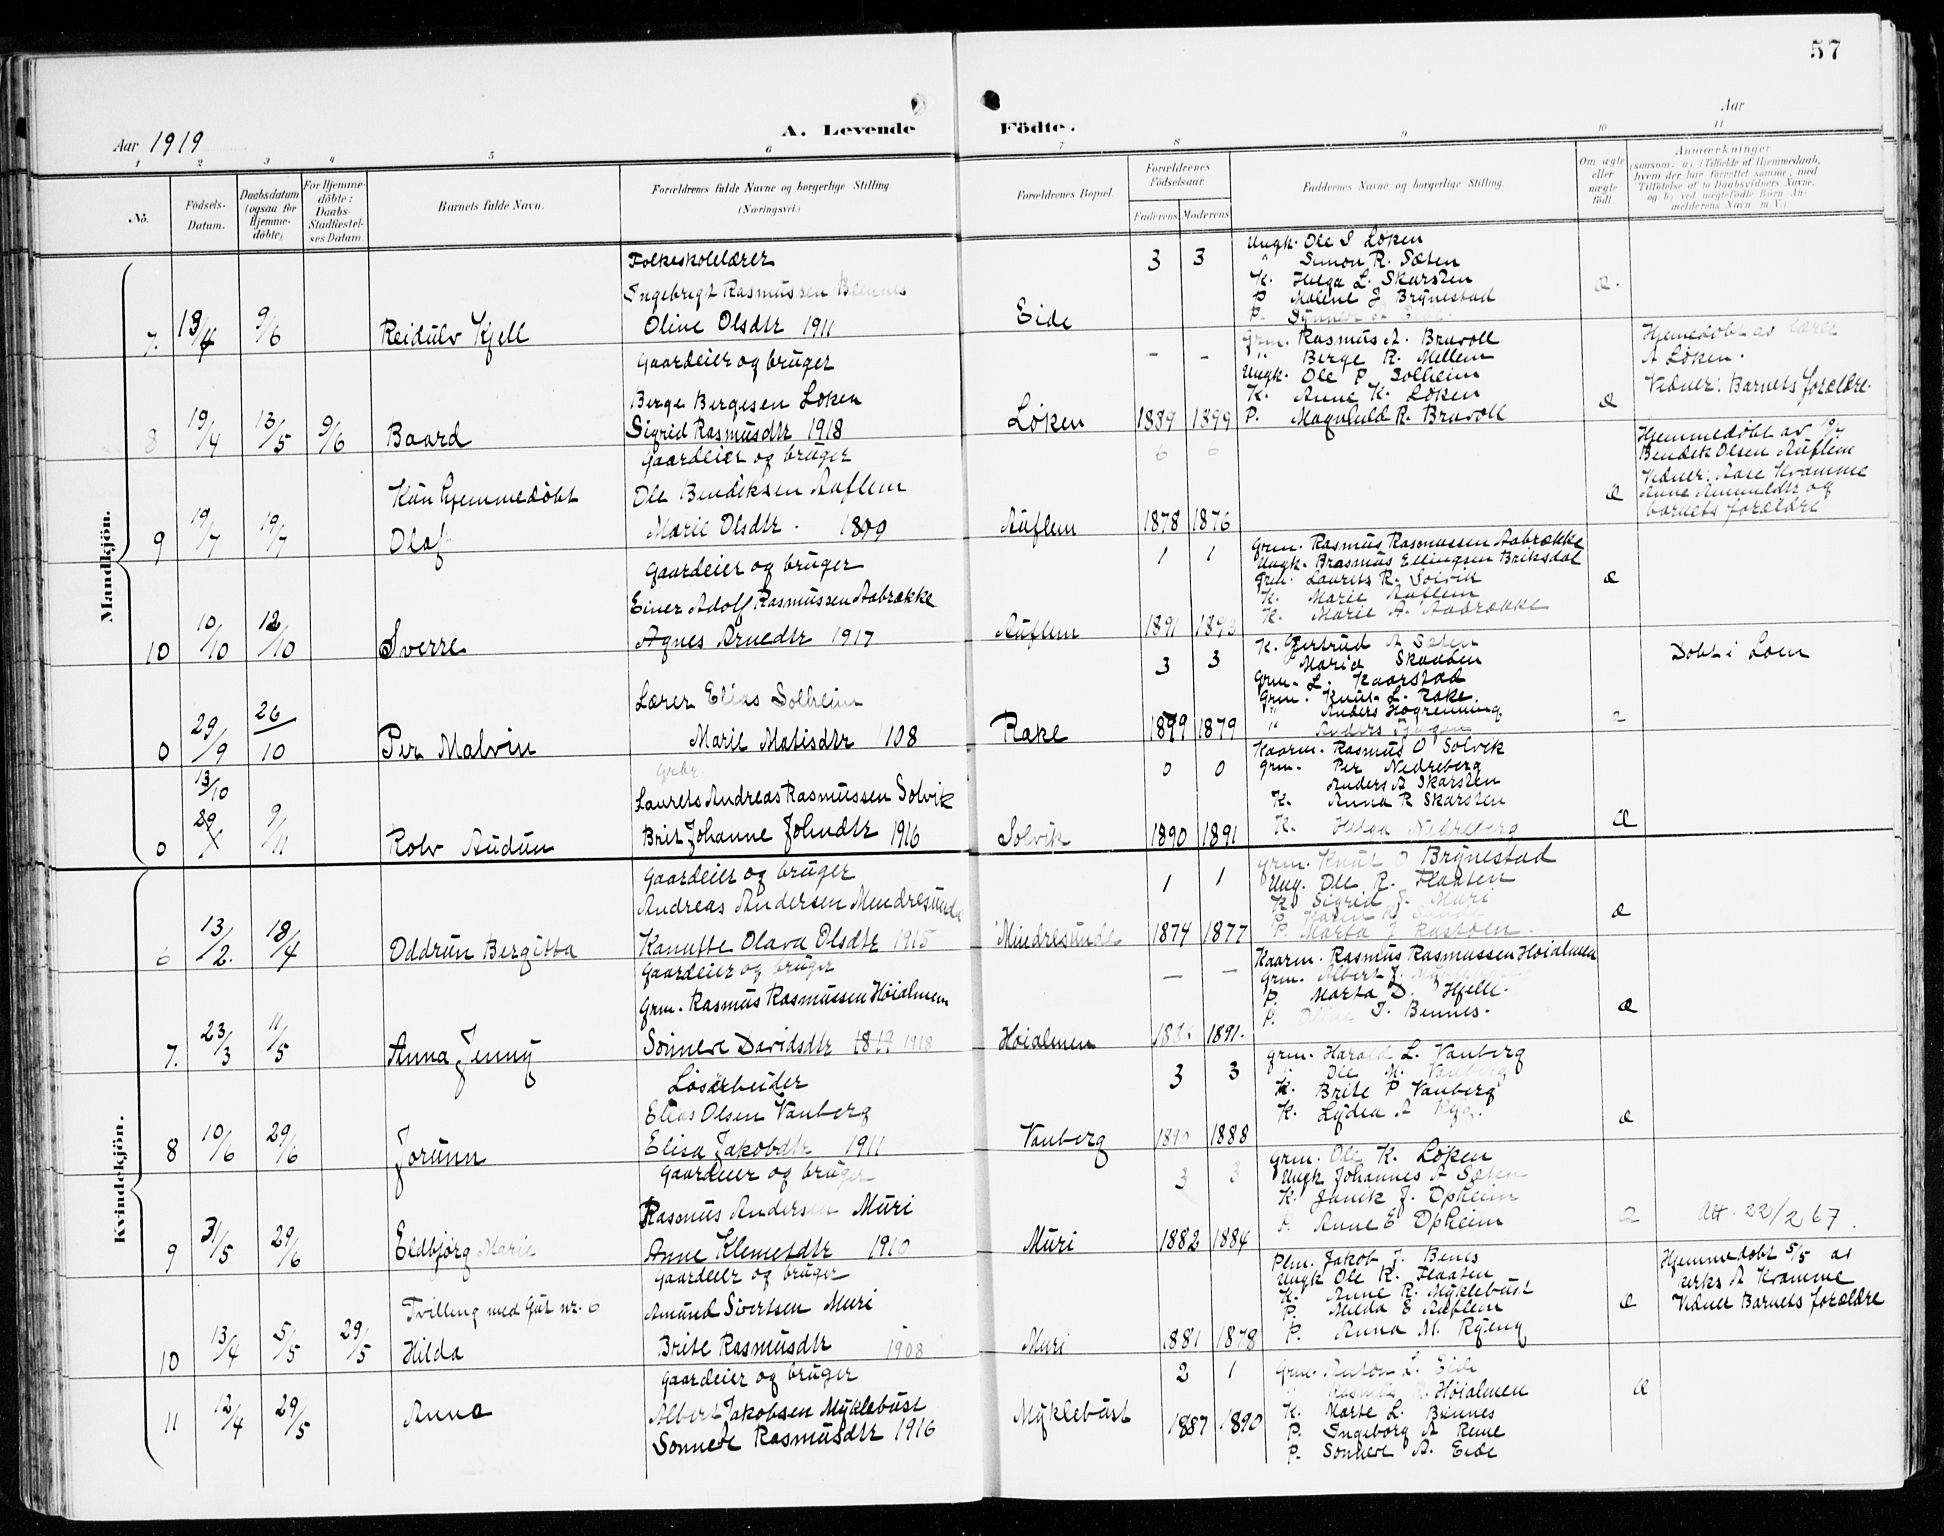 57
Aar 1919
A. Levende
Födte.
Aar
1 2 3 4 5 6 7 8 9 10 11
No.
Födsels-
Datum.
Daabsdatum
(ogsaa for
Hjemme-
döbte)
For Hjemme-
döbte:
Daabs-
Stadfæstel-
ses Datum.
Barnets fulde Navn.
Forældrenes fulde Navne og borgerlige Stilling
(Næringsvei.)
Forældrenes Bopæl.
Forældrenes
Födselsaar.
Faderens Moderens
Faddernes Navne og borgerlige Stilling
Om ægte
eller
uægte
födt.
Anmærkninger
(saasom: a) i Tilfælde af Hjemmedaab,
hvem der har forrettet samme, med
Tilföielse af to Daabsvidners Navne,
og b) ved uægtefödte Börn An-
melderens Navn m.V.)
Mandkjön.
Folkeskolelærer
Ingebrigt Rasmussen Bennes
7. 13/4 9/6 Reidulv Kjell Oline Olsdtr 1911
Eide
3 3
Ungk. Ole S Løken
" Simon R. Sæten
K. Helga L. Skarsten
P. Malene J Brynestad
P.
Æ.
Gaardeier og bruger
Berge Bergesen Løken
8 19/4 13/5 9/6 Baard Sigrid Rasmusdtr 1918
Løken
- -
1889 1899
Grm. Rasmus A. Bruvoll
" Berge R. Mellem
Ungk. Ole P. Solheim
K. Anne K. Løken
P. Magnhild R. Bruvoll
Æ
Hjemedøbt av lærer
A Løken.
Vidner: Barnets forældre.
Gaardeier og bruger
Kun hjemmedøbt Ole Bendiksen Auflem
9 19/7 19/7 Olaf Marie Olsdtr. 1899
Auflem
6 6
1878 1876
Æ
Hjemmedøbt av 19/7
Bendik Olsen Auflem
Vidner: Aase Kvamme
Anne Amundsdtr og
barnets forældre
Gaardeier og bruger
Einer Adolf Rasmussen Aabrække
10 10/10 12/10 Sverre Agnes Arnedtr 1917
Auflem
1 1
1891 1893
Grm. Rasmus Rasmussen Aabrække
Ungk. Brasmus Ellingsen Briksdal
Grm. Laurits R. Solvik
K. Marie Auflem
K. Marie A. Aabrække
Æ
Lærer Elias Solheim
0 29/9 26/10 Per Malvin Marie Matisdtr 1908
Rake
3 3
1879 1879
K. Gjertrud A Sæten
Grm. L. Kaarstad
Grm. Knut L. Rake
" Anders Hogrenning
Døbt i Loen
Grbr.
13/10
Laurits Andreas Rasmussen Solvik
0 29/X 9/11 Rolv Audun Brit Johanne Johndtr 1916
Solvik
0 0
1890 1891
Kaarm. Rasmus O Solvik
Grm. Per Nedreberg
Anders A Skarsten
K. Anna R Skarsten
K. Helga Nedreberg
Æ
Kvindekjön.
Gaardeier og bruger
Andreas Andersen Mindresunde
6 13/2. 18/4 Oddrun Bergitta Kanutte Olava Olsdtr 1915
Mindresunde
1 1
1874 1877
Grm. Knut O Brynestad
Ung. Ole R. Flaaten
K. Sigrid J. Muri
P. Marta J Rastøen.
Æ
Gaardeier og bruger
Grm. Rasmus Rasmussen Høialmen
7. 23/3 11/5 Anna Jenny Sønneve Davidsdtr 1918
Høialmen
- -
1891.
Kaarm. Rasmus Rasmussen Høialmen
Grm. Albert J.
P. Marta D. Hjelle.
P. Oline J. Bennes.
Æ
Løsarbeider
Elias Olsen Vanberg
8 10/6 29/6 Jorunn Elisa Jakobdtr 1911
Vanberg
3 3
1890 1888
Grm. Harald L. Vanberg
" Ole M. Vanberg
K. Brite P Vanberg
K. Lydia A Ryg.
Æ
Gaardeier og bruger
Rasmus Andersen Muri
9 31/5 29/6 Eldbjørg Marie Anne Klemetdtr 1910
Muri
3 3
1882 1884
Grm. Ole K. Løken
Ungk Johannes A Sæten
K. Janik J. Opheim
P. Anne E Opheim
Æ
Att. 22/2 67.
Gaardeier og bruger
Tvilling med Gut nr. 6 Amund Sivertsen Muri
10 13/4 5/5 29/5 Hilda Brite Rasmusdtr 1908
Muri
1881 1878
Plm. Jakob J. Benes
Ungk Ole R. Flaaten
K. Anne R. Myklebust
P. Mida E Auflem
P. Anna M. Ryeng
Æ
Hjemmedøbt 5/5 av
kirks A Kvamme
Vidner Barnets forældre
Gaardeier og bruger
Albert Jakobsen Myklebust
11 12/4 29/5 Anna Sønneve Rasmusdtr 1916
Myklebust
2 1
1887 1890
Grm. Anton L. Eide
" Rasmus R. Høialmen
K. Marte L. Bennes
P. Ingeborg A Rene
P. Sønneve A. Eide
Æ